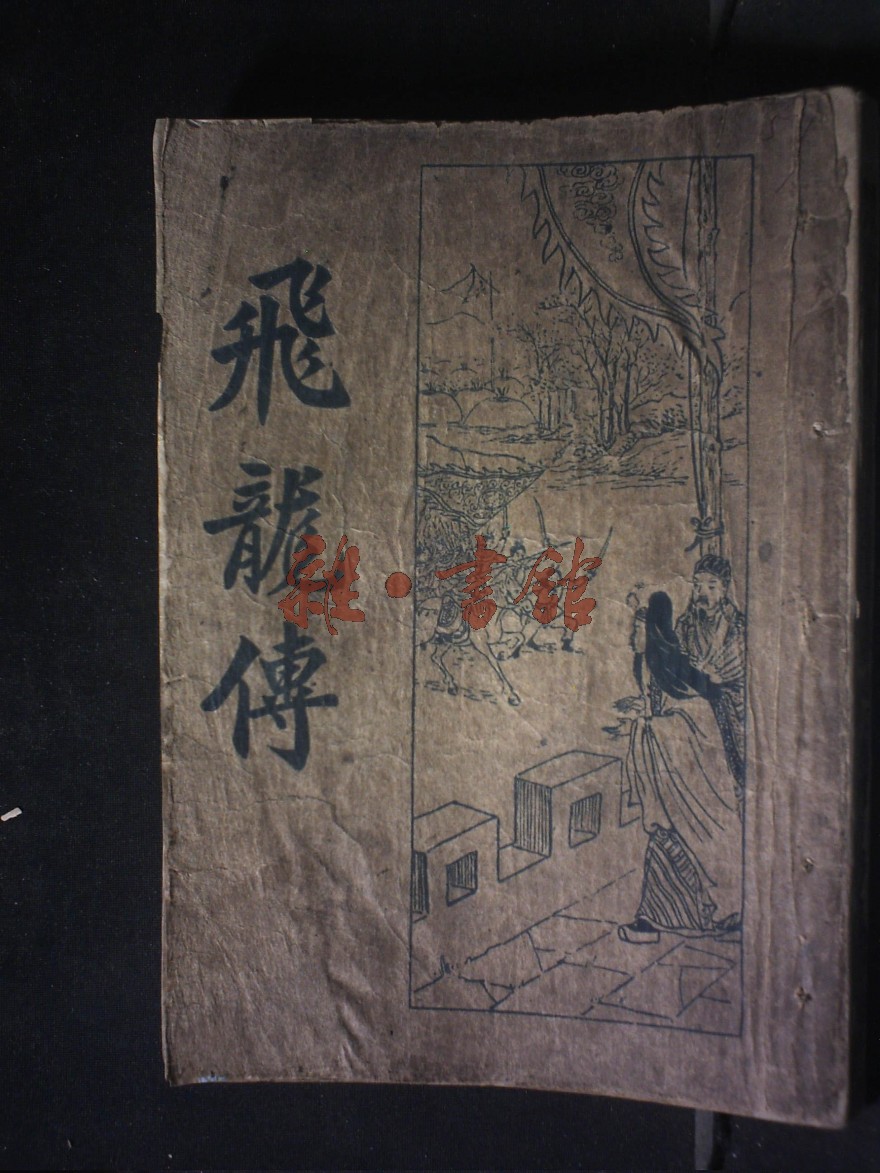 飛龍傳
雜·書館